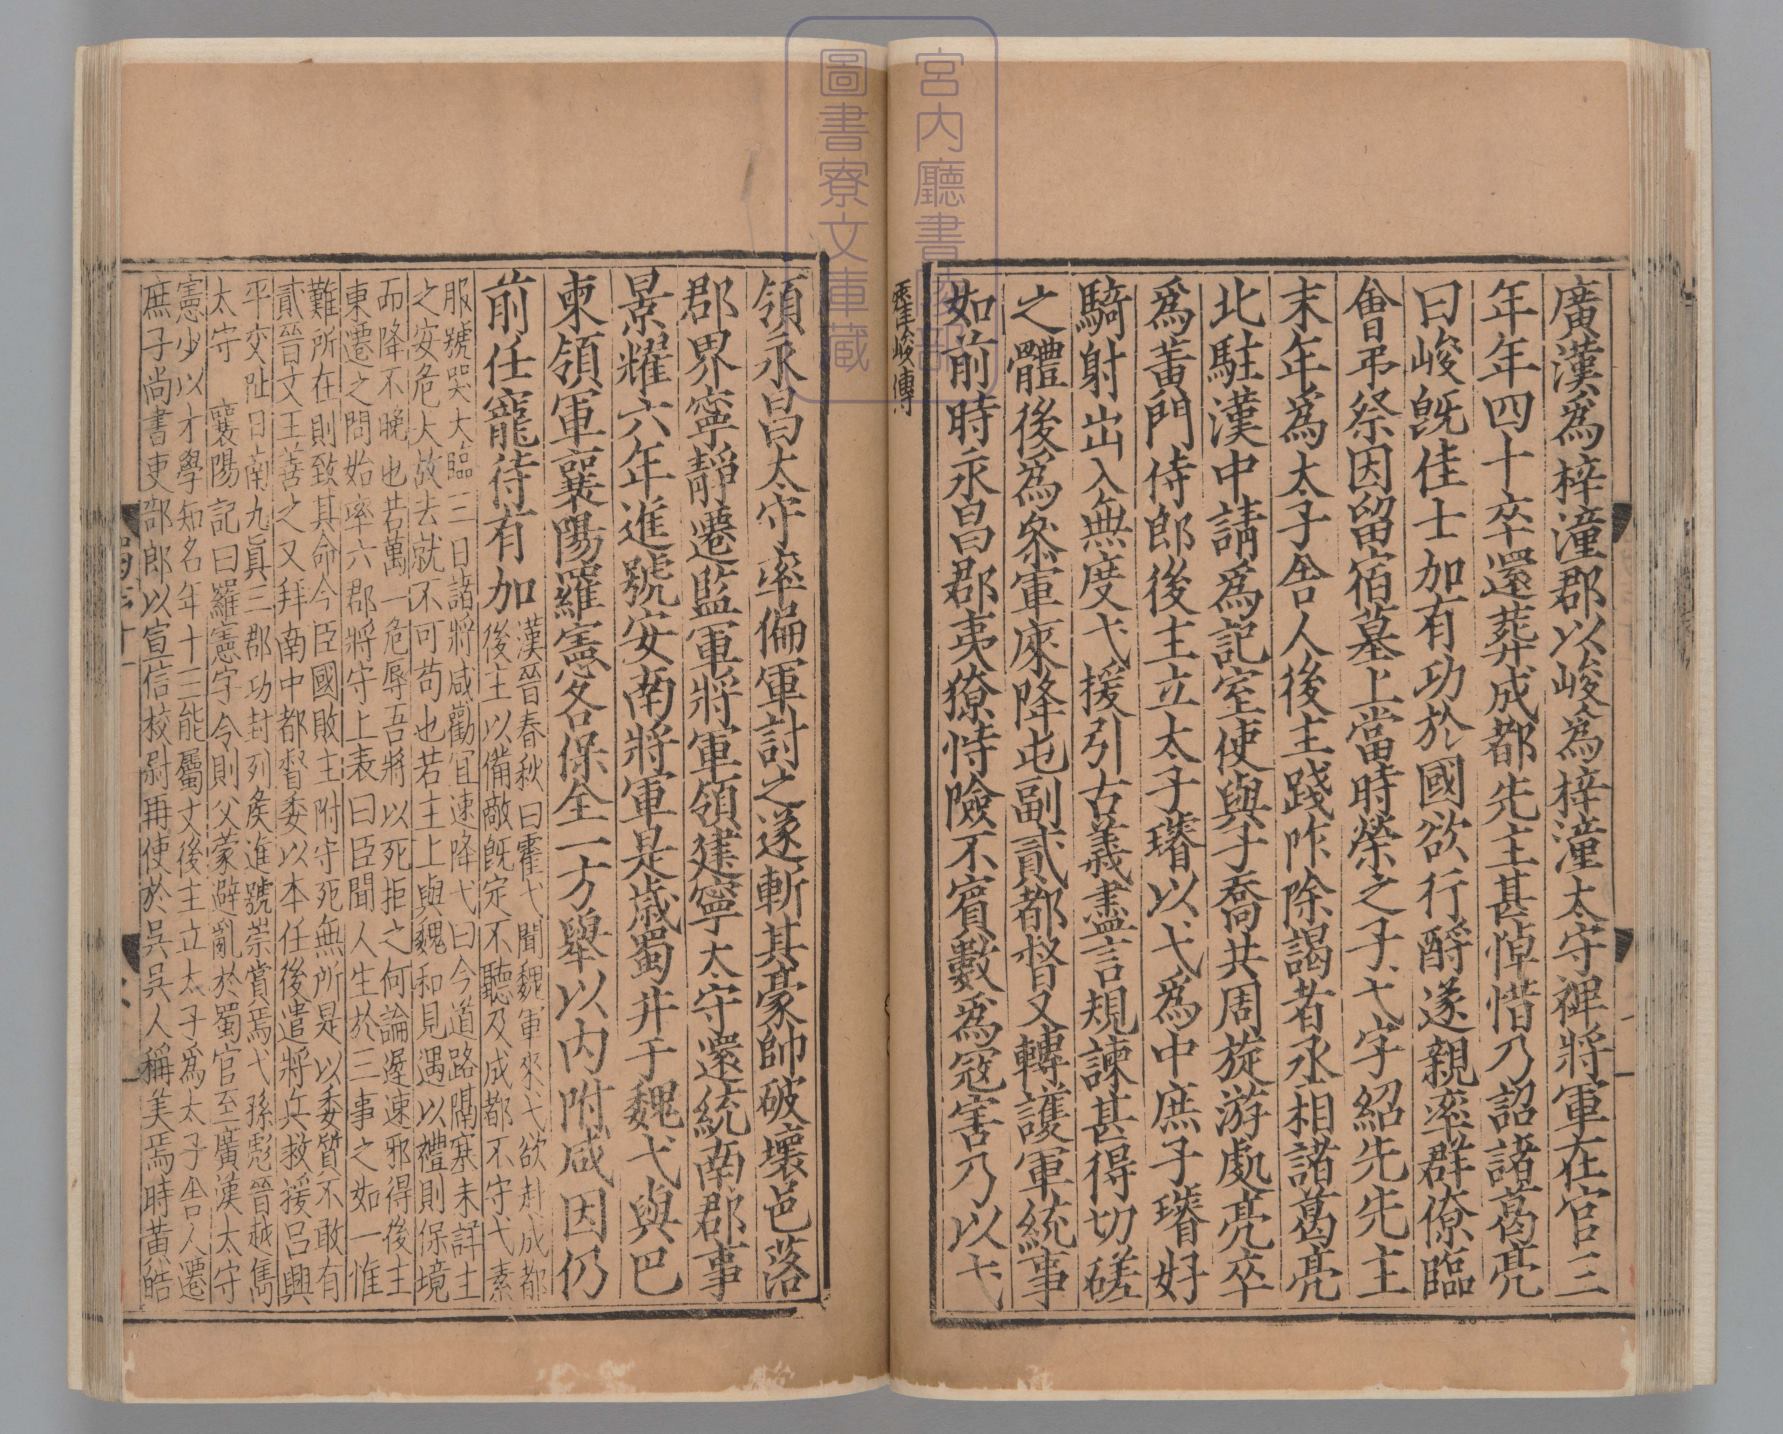 廣漢爲梓潼郡以峻爲梓潼太守禆將軍在官三
年年四十卒還葬成都先主甚悼惜乃詔諸葛亮
曰峻旣佳士加有功於國欲行酹遂親率群僚臨
會弔祭因留宿墓上當時榮之子弋字紹先先主
末年爲太子舍人後主踐阼除謁者丞相諸葛亮
北駐漢中請爲記室使與子喬共周旋游處亮卒
爲黃門侍郎後主立太子璿以弋爲中庶子璿好
騎射出入無度弋援引古義盡言規諫甚得切磋
之體後爲參軍庲降屯副貳都督又轉護軍統事
如前時永昌郡夷獠恃險不賓數爲寇害乃以弋
霍峻傳
領永昌太守率偏軍討之遂斬其豪帥破壞邑落
郡界寧靜遷監軍將軍領建寧太守還統南郡事
景耀六年進號安南將軍是歲蜀并于魏弋與巴
東領軍襄陽羅憲各保全一方舉以內附咸因仍
前任寵待有加
漢晉春秋曰霍弋聞魏軍來弋欲赴成都
後主以備敵旣定不聽及成都不守弋素
服號哭大臨三日諸將咸勸宜速降弋曰今道路隔塞未詳主
之安危大故去就不可苟也若主上與魏和見遇以禮則保境
而降不晚也若萬一危辱吾將以死拒之何論遲速邪得後主
東遷之問始率六郡將守上表曰臣聞人生於三事之如一惟
難所在則致其命今臣國敗主附守死無所是以委質不敢有
貳晉文王善之又拜南中都督委以本任後遣將兵救援呂興
平交阯日南九眞三郡功封列侯進號崇賞焉弋孫彪晉越雋
太守　襄陽記曰羅憲字令則父蒙避亂於蜀官至廣漢太守
憲少以才學知名年十三能屬文後主立太子爲太子舍人遷
庶子尚書吏部郎以宣信校尉再使於吳吳人稱美焉時黃皓
宮内廳書陵部
圖書寮文庫蔵